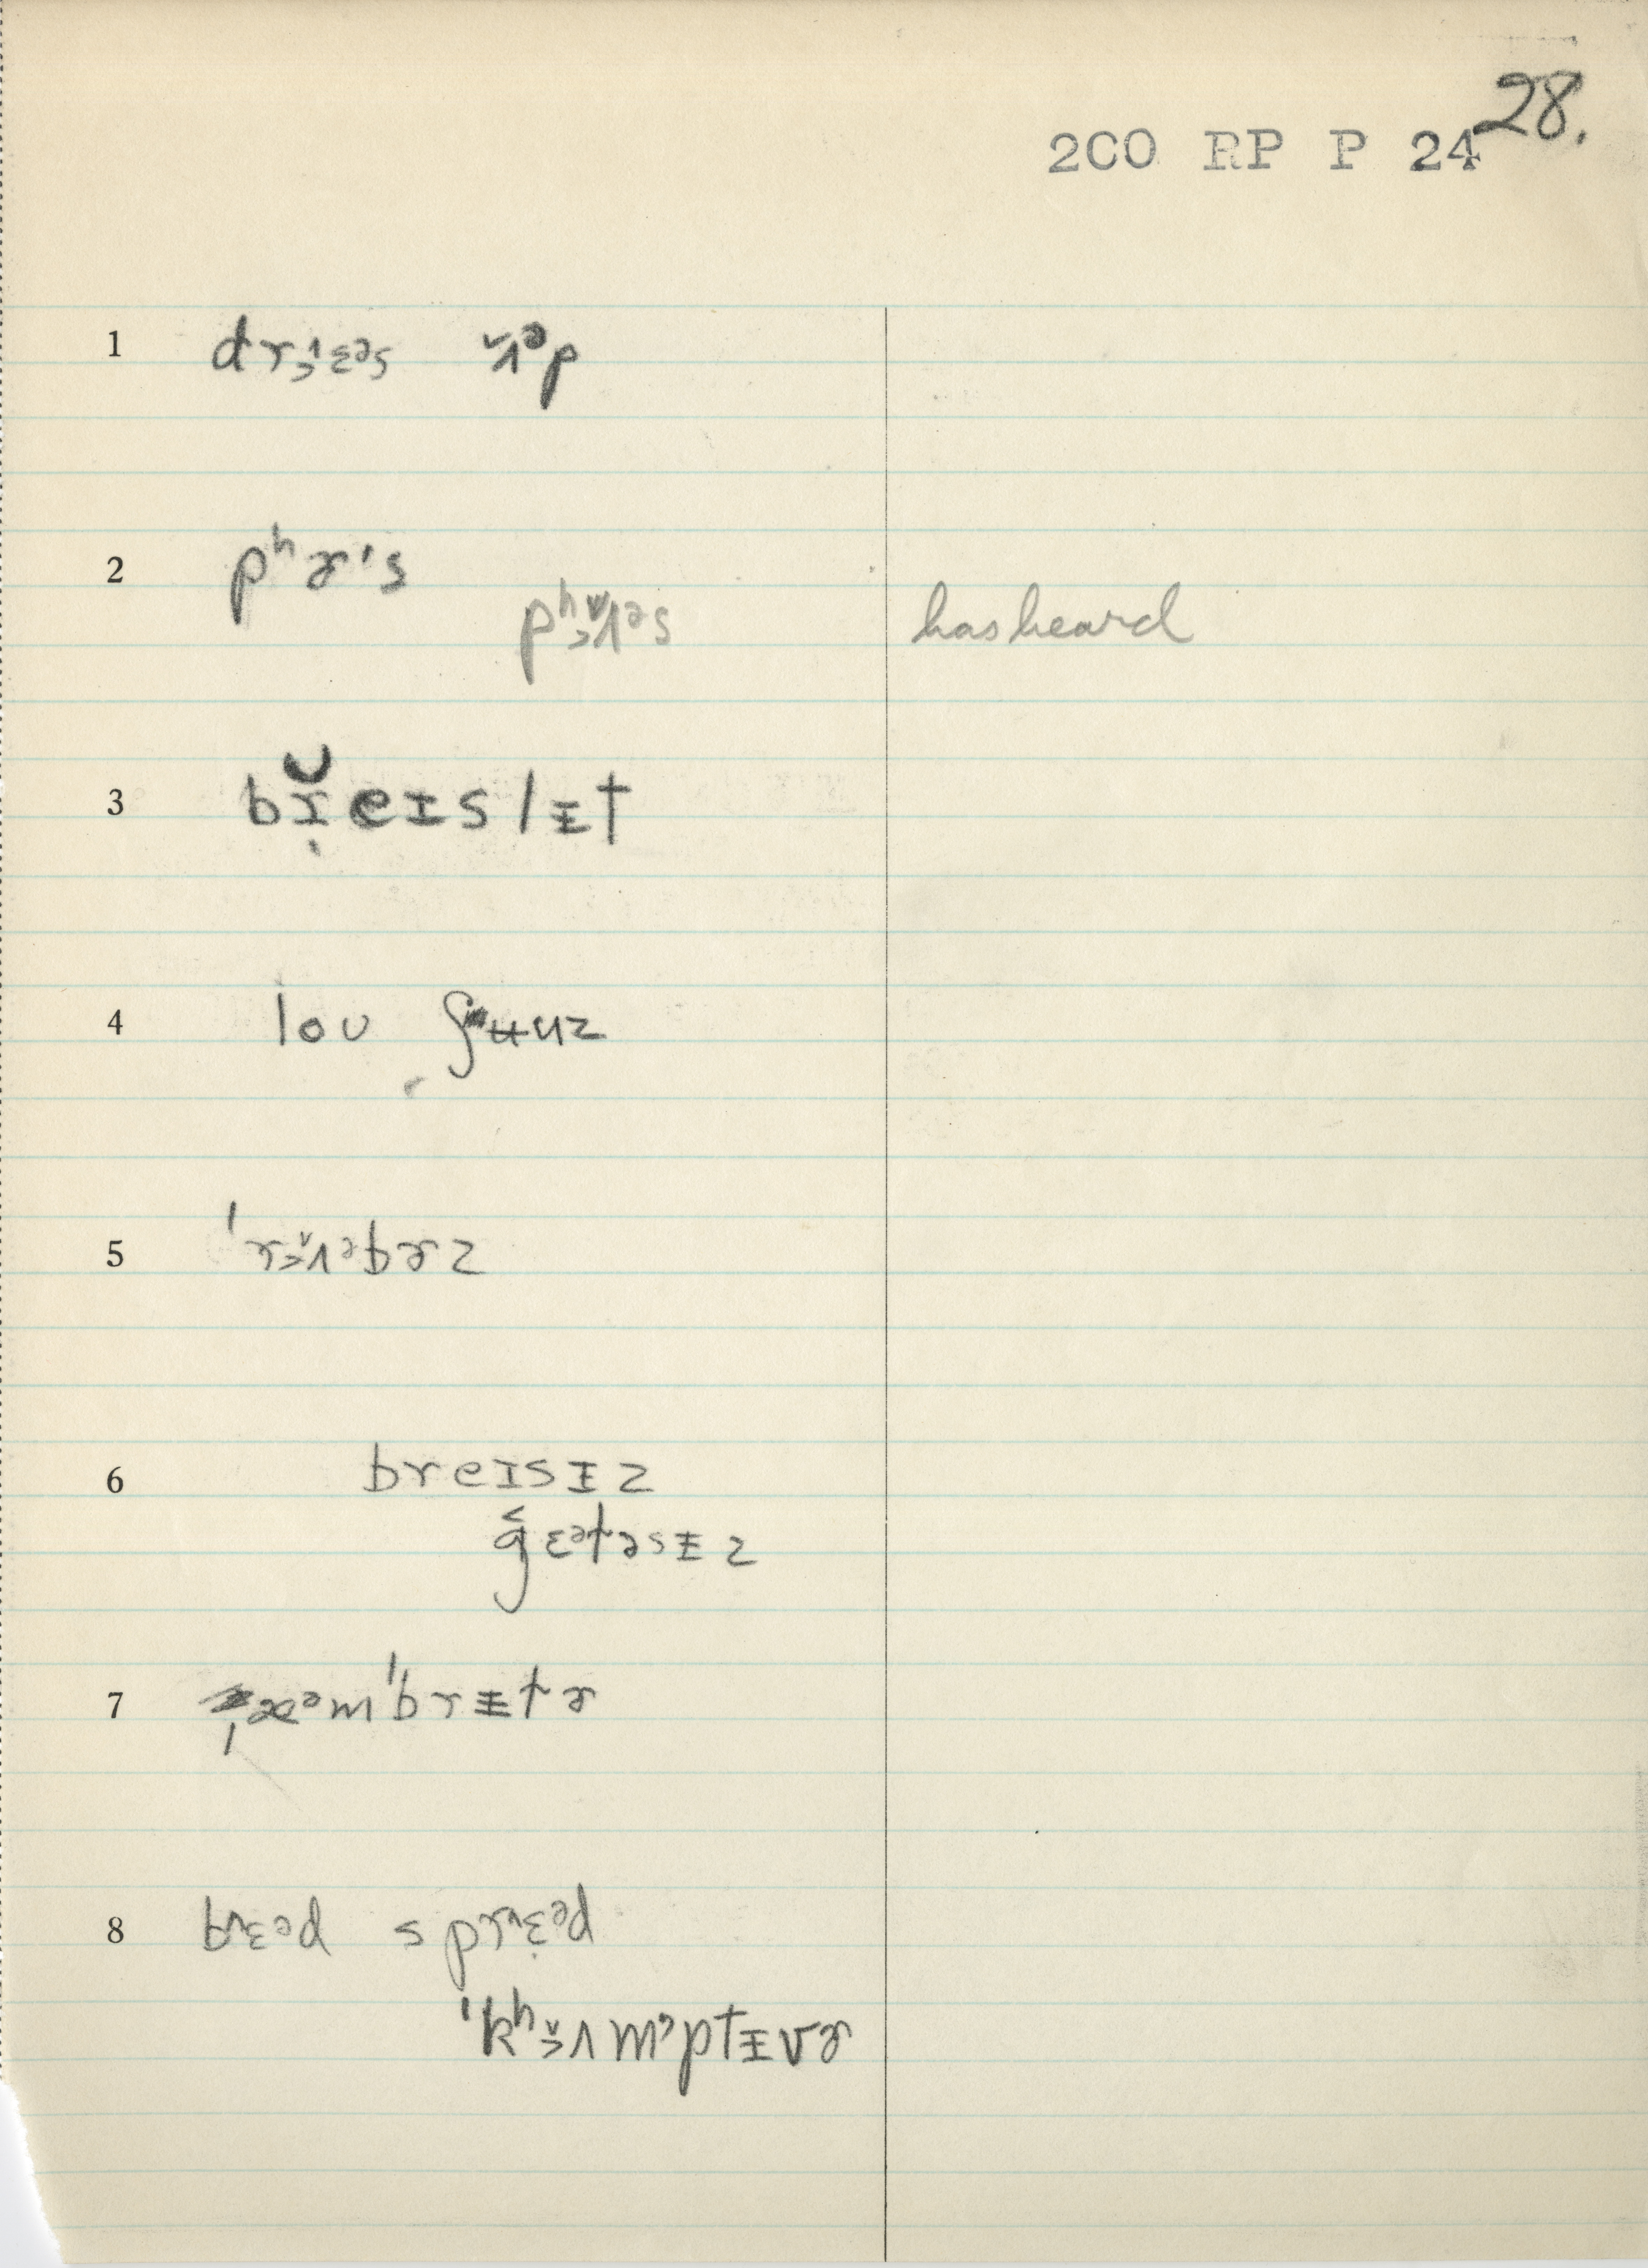 28.
2CO RP P 24
1 drɛ^əs ʌ̌ᵊp
2 pʰɚ's
pʰʌ̌ᵊs has heard
3 br̆eɪslɨt
4 loʊ ʃuuz
5 'rʌ̌ᵊbɚz
6 breɪsɨz
gɛᵊtəsɨz
7 æᵊm'brɨtɚ
8 brɛᵊd sprɛᵊd
'kʰʌ̌mᵊptɨvɚ